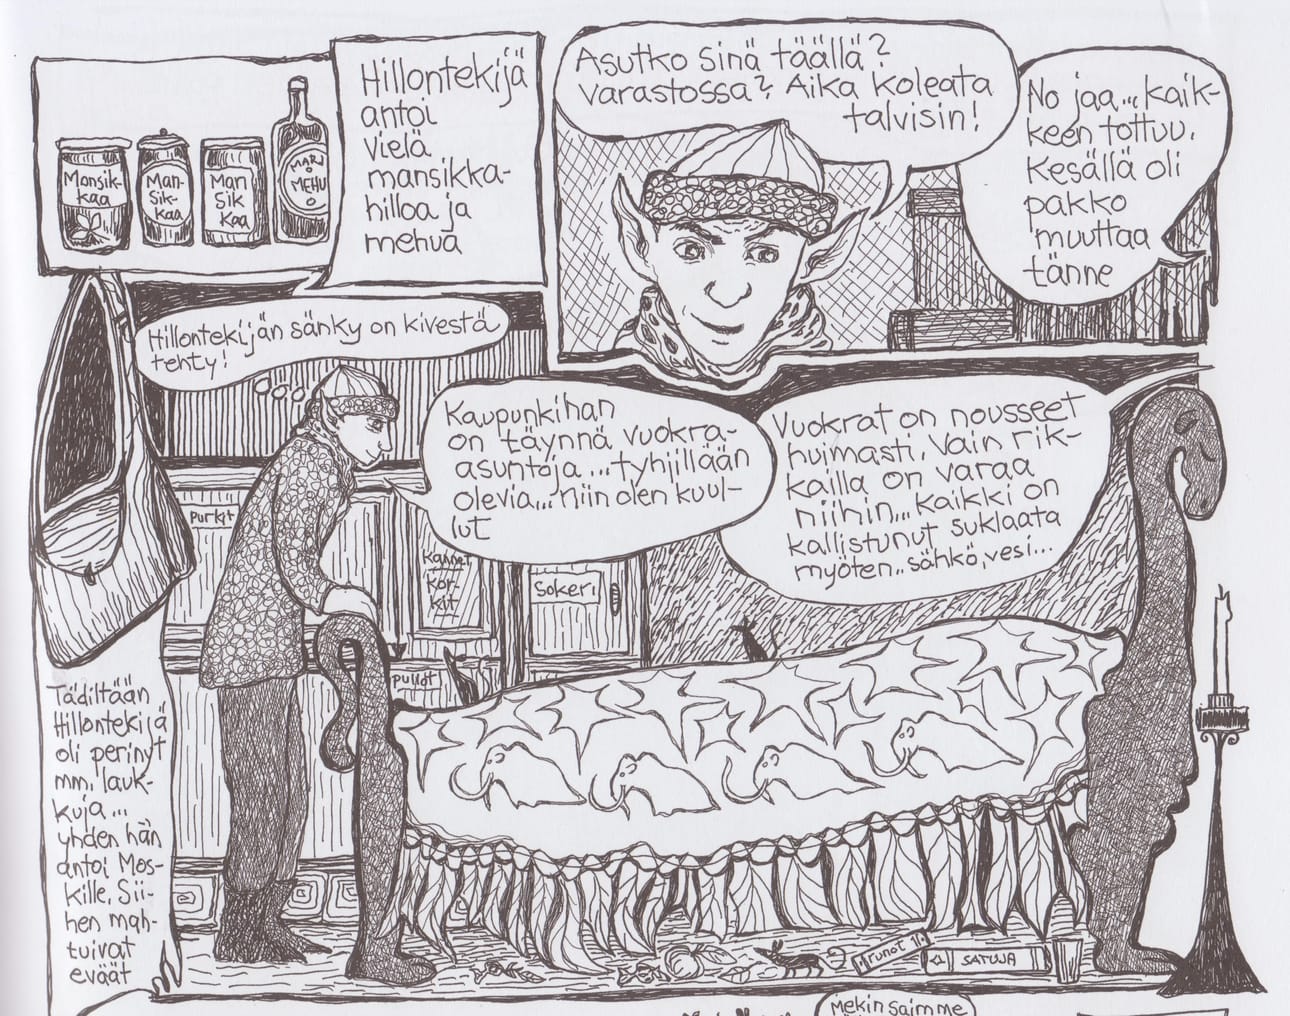 Mansik-
kaa
Man-
sik-
kaa
Man
sik
kaa
MARJ
O
MEHU
O
Hillontekijä
antoi
vielä
mansikka-
hilloa ja
mehua
Asutko sinä täällä?
Varastossa? Aika koleata
talvisin!
No jaa... kaik-
keen tottuu.
Kesällä oli
pakko
muuttaa
tänne
Hillontekijän sänky on kivestä
tehty!
Kaupunkihan
on täynnä vuokra-
asuntoja... tyhjillään
olevia... niin olen kuul-
lut
Vuokrat on nousseet
huimasti. Vain rik-
kailla on varaa
niihin... Kaikki on
kallistunut suklaata
myöten.. sähkö, vesi...
Purkit
kannet
kor-
kit
Sokeri
pullot
Tädiltään
Hillontekijä
oli perinyt
mm. lauk-
kuja...
yhden hän
antoi Mos-
kille. Sii-
hen mah-
tuivat
eväät
Runot
SATUJA
mekin saimme